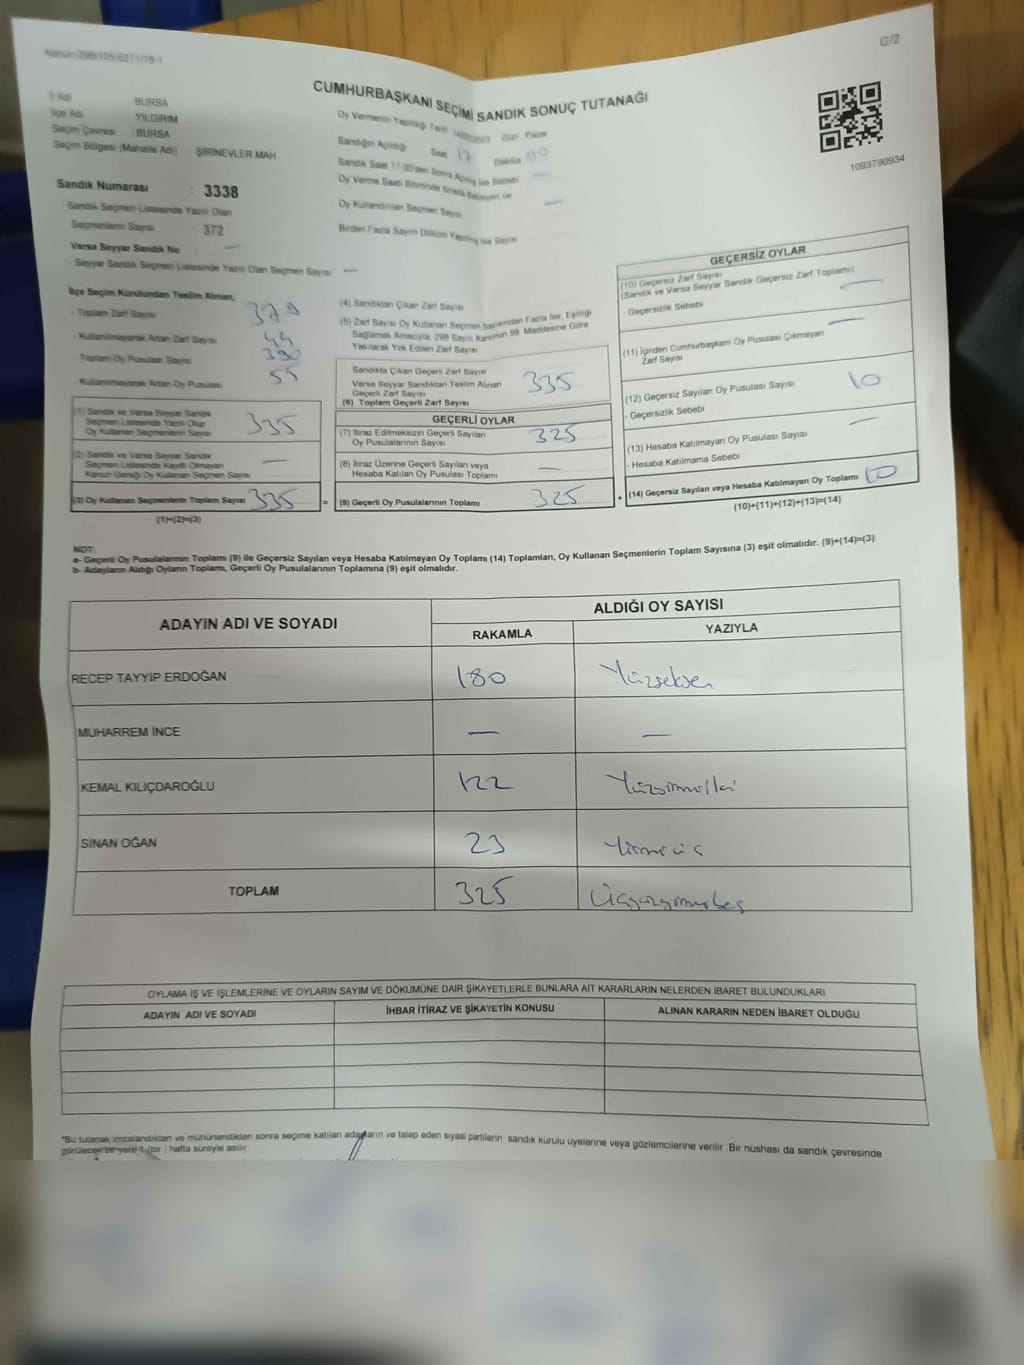 Kanun:298/105;6271/18-1
C/2
CUMHURBAŞKANI SEÇİMİ SANDIK SONUÇ TUTANAĞI
İl Adı BURSA
İlçe Adı YILDIRIM
Seçim Çevresi : BURSA
Seçim Bölgesi (Mahalle Adı) ŞİRİNEVLER MAH
Sandık Numarası : 3338
- Sandık Seçmen Listesinde Yazılı Olan
Seçmenlerin Sayısı : 372
Varsa Seyyar Sandık No : —
- Seyyar Sandık Seçmen Listesinde Yazılı Olan Seçmen Sayısı —
Oy Vermenin Yapıldığı Tarih 14/05/2023 Gün Pazar
Sandığın Açıldığı Saat 17 Dakika 00
Sandık Saat 17:00'den Sonra Açılmış İse Sebebi —
Oy Verme Saati Bitiminde Sırada Bekleyen ve
Oy Kullandırılan Seçmen Sayısı —
Birden Fazla Sayım Döküm Yapılmış İse Sayısı
1093790934
İlçe Seçim Kurulundan Teslim Alınan;
- Toplam Zarf Sayısı 379
- Kullanılmayarak Artan Zarf Sayısı 44
- Toplam Oy Pusulası Sayısı 390
- Kullanılmayarak Artan Oy Pusulası 55
(1) Sandık ve Varsa Seyyar Sandık
Seçmen Listesinde Yazılı Olup
Oy Kullanan Seçmenlerin Sayısı 335
(2) Sandık ve Varsa Seyyar Sandık
Seçmen Listesinde Kayıtlı Olmayan
Kanun Gereği Oy Kullanan Seçmen Sayısı —
(3) Oy Kullanan Seçmenlerin Toplam Sayısı 335
(1)+(2)=(3)
=
(4) Sandıktan Çıkan Zarf Sayısı
(5) Zarf Sayısı Oy Kullanan Seçmen Sayısından Fazla İse, Eşitliği
Sağlamak Amacıyla, 298 Sayılı Kanunun 98. Maddesine Göre
Yakılarak Yok Edilen Zarf Sayısı
Sandıkta Çıkan Geçerli Zarf Sayısı
Varsa Seyyar Sandıktan Teslim Alınan
Geçerli Zarf Sayısı
335
(6) Toplam Geçerli Zarf Sayısı
GEÇERLİ OYLAR
(7) İtiraz Edilmeksizin Geçerli Sayılan
Oy Pusulalarının Sayısı 325
(8) İtiraz Üzerine Geçerli Sayılan veya
Hesaba Katılan Oy Pusulası Toplamı —
(9) Geçerli Oy Pusulalarının Toplamı 325
+
GEÇERSİZ OYLAR
(10) Geçersiz Zarf Sayısı
(Sandık ve Varsa Seyyar Sandık Geçersiz Zarf Toplamı) —
- Geçersizlik Sebebi
(11) İçinden Cumhurbaşkanı Oy Pusulası Çıkmayan —
Zarf Sayısı
(12) Geçersiz Sayılan Oy Pusulası Sayısı 10
- Geçersizlik Sebebi
(13) Hesaba Katılmayan Oy Pusulası Sayısı —
- Hesaba Katılmama Sebebi
(14) Geçersiz Sayılan veya Hesaba Katılmayan Oy Toplamı 10
(10)+(11)+(12)+(13)=(14)
NOT:
a- Geçerli Oy Pusulalarının Toplamı (9) ile Geçersiz Sayılan veya Hesaba Katılmayan Oy Toplamı (14) Toplamları, Oy Kullanan Seçmenlerin Toplam Sayısına (3) eşit olmalıdır. (9)+(14)=(3)
b- Adayların Aldığı Oyların Toplamı, Geçerli Oy Pusulalarının Toplamına (9) eşit olmalıdır.
ADAYIN ADI VE SOYADI
ALDIĞI OY SAYISI
RAKAMLA YAZIYLA
RECEP TAYYİP ERDOĞAN 180 Yüzseksen
MUHARREM İNCE — —
KEMAL KILIÇDAROĞLU 122 Yüzyirmiiki
SİNAN OĞAN 23 Yirmiüç
TOPLAM 325 Üçyüzyirmibeş
OYLAMA İŞ VE İŞLEMLERİNE VE OYLARIN SAYIM VE DÖKÜMÜNE DAİR ŞİKAYETLERLE BUNLARA AİT KARARLARIN NELERDEN İBARET BULUNDUKLARI
ADAYIN ADI VE SOYADI İHBAR İTİRAZ VE ŞİKAYETİN KONUSU ALINAN KARARIN NEDEN İBARET OLDUĞU
*Bu tutanak imzalandıktan ve mühürlendikten sonra seçime katılan adayların ve talep eden siyasi partilerin sandık kurulu üyelerine veya gözlemcilerine verilir. Bir nüshası da sandık çevresinde
görülecek bir yere 1 (bir) hafta süreyle asılır.